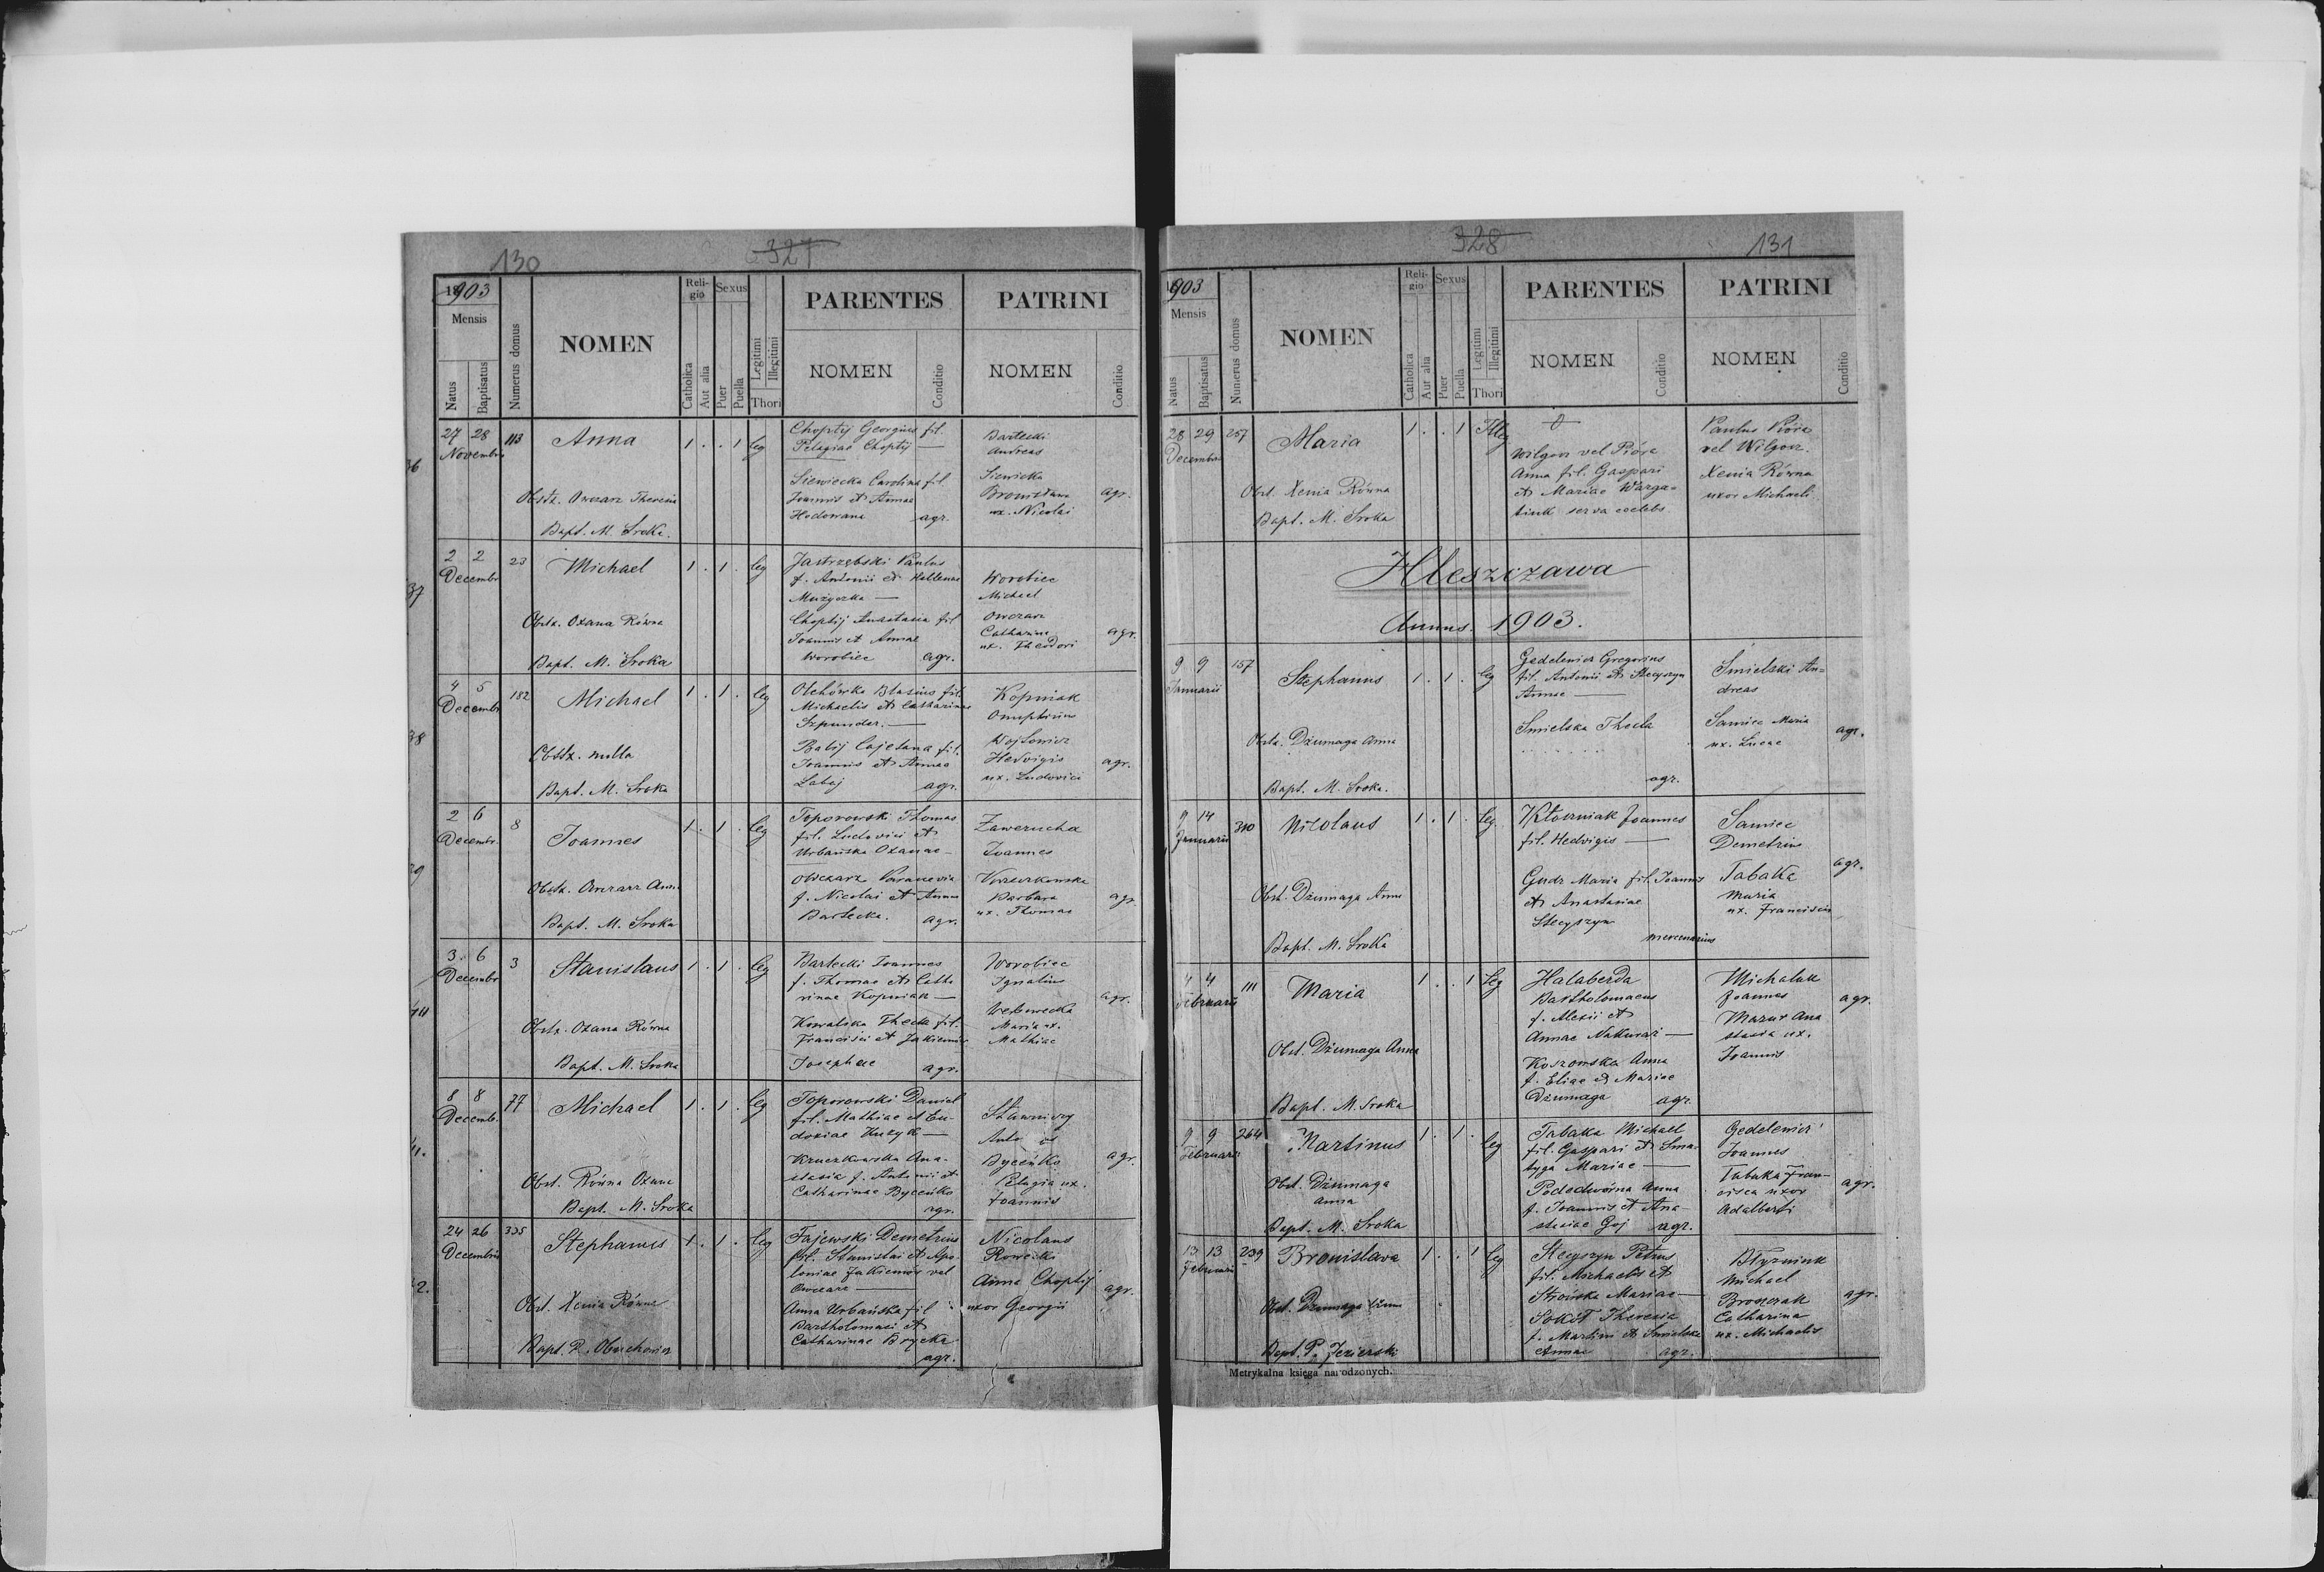 130
327
1903
Mensis
Natus
Baptisatus
Numerus domus
NOMEN
Religio
Catholica
Aut alia
Sexus
Puer
Puella
Legitimi
Illegitimi
Thori
PARENTES
NOMEN
Conditio
PATRINI
NOMEN
Conditio
36
27 28
Novembris
113
Anna
1 . . 1 leg
Obstx. Owczarz Theresia
Bapt. M. Sroka.
Choptij Georgius fil.
Pelagiae Choptij —
Siewiecka Carolina fil
Joannis et Annae
Hodowana agr.
Bartecki
Andreas
Siewicka
Bronislawa
ux. Nicolai
agr.
37
2 2
Decembr
23
Michael
1 . 1 . leg
Obstx. Oxana Równa
Bapt. M. Sroka
Jastrzębski Paulus
f. Antonii et Hellenae
Muzyczka —
Choptij Anastasia fil
Joannis et Annae
Worobiec agr.
Worobiec
Michael
Owczarz
Catharina
ux. Theodori
agr.
38
4 5
Decembr
182
Michael
1 . 1 . leg
Obstx. nulla
Bapt. M. Sroka
Olchówka Blasius fil.
Michaelis et Catharinae
Szpunder. —
Babij Cajetana fil.
Joannis et Annae
Labaj agr.
Kopniak
Onuphrius
Wojtowicz
Hedvigis
ux. Ludovici
agr.
39
2 6
Decembr.
8
Joannes
1 . 1 . leg
Obstx. Owczarz Anna
Bapt. M. Sroka
Toporowski Thomas
fil. Ludovici et
Urbańska Oxanae —
Owczarz Paraxevia
f. Nicolai et Annae
Bartecka. agr.
Zawerucha
Joannes
Barbara
ux. Thomas
agr.
40
3. 6
Decembr
3
Stanislaus
1 . 1 . leg
Obstx. Oxana Równa
Bapt. M. Sroka
Bartecki Joannes
f. Thomae et Catha
rinae Kopniak —
Kowalska Thecla fil.
Francisci et Jakiemów
Josephae agr.
Worobiec
Ignatius
Maria ux.
Mathiae
agr.
41.
8 8
Decemb.
77
Michael
1 . 1 . leg
Obst. Równa Oxana
Bapt. M. Sroka
Toporowski Daniel
fil. Mathiae et Eu-
doxiae Kuzyk —
Kruczkowska Ana-
stasia f. Antonii et
Catharinae Byceńko
agr.
Stawniczy
Byceńko
Pelagia ux.
Joannis
agr.
42.
24 26
Decembris
335
Stephanus
1 . 1 . leg
Obst. Xenia Równa
Bapt. P. Obuchowicz
Fajewski Demetrius
fil. Stanislai et Apo-
loniae Jakiemów vel
Owczarz —
Anna Urbańska fil
Bartholomaei et
Catharinae Brycka
agr.
Nicolaus
Rowecki
Anna Choptij
uxor Georgii
agr.
328
131
1903
Mensis
Natus
Baptisatus
Numerus domus
NOMEN
Religio
Catholica
Aut alia
Sexus
Puer
Puella
Legitimi
Illegitimi
Thori
PARENTES
NOMEN
Conditio
PATRINI
NOMEN
Conditio
28 29
Decembr
257
Maria
1 . . 1 Illeg
Obst. Xenia Równa
Bapt. M. Sroka
Wilgosz vel Pióro
Anna fil. Gaspari
et Mariae Warga-
tiuk serva coelebs
Paulus Pióro
vel Wilgosz.
Xenia Równa
uxor Michaeli
Hleszczawa
Annus 1903.
9 9
Januarii
157
Stephanus
1 . 1 . leg
Obstx. Dżumaga Anna
Bapt. M. Sroka.
Gedelewicz Gregorius
fil. Antonii et Stecyszyn
Annae —
Smielska Thecla
agr.
Smielski An-
dreas
Samiec Maria
ux. Lucae
agr.
9 14
Januarii
310
Nicolaus
1 . 1 . leg.
Obst. Dżumaga Anna
Bapt. M. Sroka
Kłosrniak Joannes
fil. Hedvigis —
Gudz Maria fil. Joannis
et Anastasiae
Stecyszyn
mercenarius
Samiec
Demetrius
Tabaka
Maria
ux. Francisci
agr.
4 4
Februarii
111
Maria
1 . . 1 leg
Obst. Dżumaga Anna
Bapt. M. Sroka
Halaberda
Bartholomaeus
f. Alexii et
Annae Nakurasz —
Koszowska Anna
f. Eliae et Mariae
Dżumaga agr.
Michalak
Joannes
Mazur Ana
stasia ux.
Joannis
agr.
9 9
Februarii
264
Martinus
1 . 1 . leg
Obst. Dżumaga
Anna
Bapt. M. Sroka
Tabaka Michael
fil. Gaspari et Sma-
tyga Mariae —
Podedwórna Anna
f. Joannis et Ana-
stasiae Goj agr.
Gedelewicz
Joannes
Tabaka Fran-
cisca uxor
Adalberti
agr.
13 13
Februarii
239
Bronislava
1 . . 1 leg
Obst. Dżumaga Anna
Bapt. P. Jezierski
Stecyszyn Petrus
fil. Michaelis et
Strońska Mariae —
Sokół Theresia
f. Martini et Smielska
Annae agr.
Błyzniuk
Michael
Broszczak
Catharina
ux. Michaelis
agr.
Metrykalna księga narodzonych.